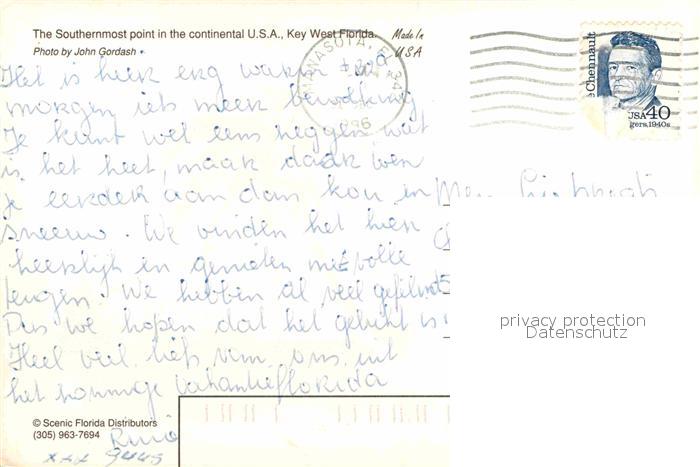 The Southernmost point in the continental U.S.A., Key West Florida.
Made In USA
Photo by John Gordash
Het is heer erg warm ± 30°
morgen iets meer bewolking
Je kunt wel eens zeggen wat
is het heet, maar daar ben
je eerder aan dan kou en
sneeuw. We vinden het hier
heerlijk en genieten met volle
teugen. We hebben al veel gefilmd
Dus we hopen dat het gelukt is
Heel veel liefs van ons uit
het zonnige vakantieflorida
© Scenic Florida Distributors
(305) 963-7694
xxx
MANASOTA, FL 34
1996
Chennault
USA 40
privacy protection
Datenschutz